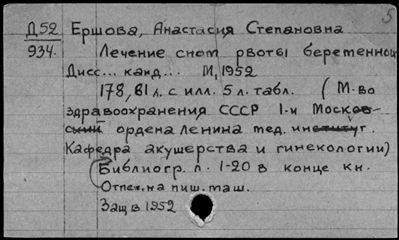 5
Д52 Ершова, Анастасия Степановна
934. Лечение сном рвоты беременной
Дисс... канд... М, 1952
178, 81 л. с илл. 5 л. табл. (М-во
здравоохранения СССР 1-й Москов-
ский ордена Ленина мед. институт.
Кафедра акушерства и гинекологии)
Библиогр. л. 1-20 в конце кн.
Отпеч. на пиш. маш.
Защ в 1952